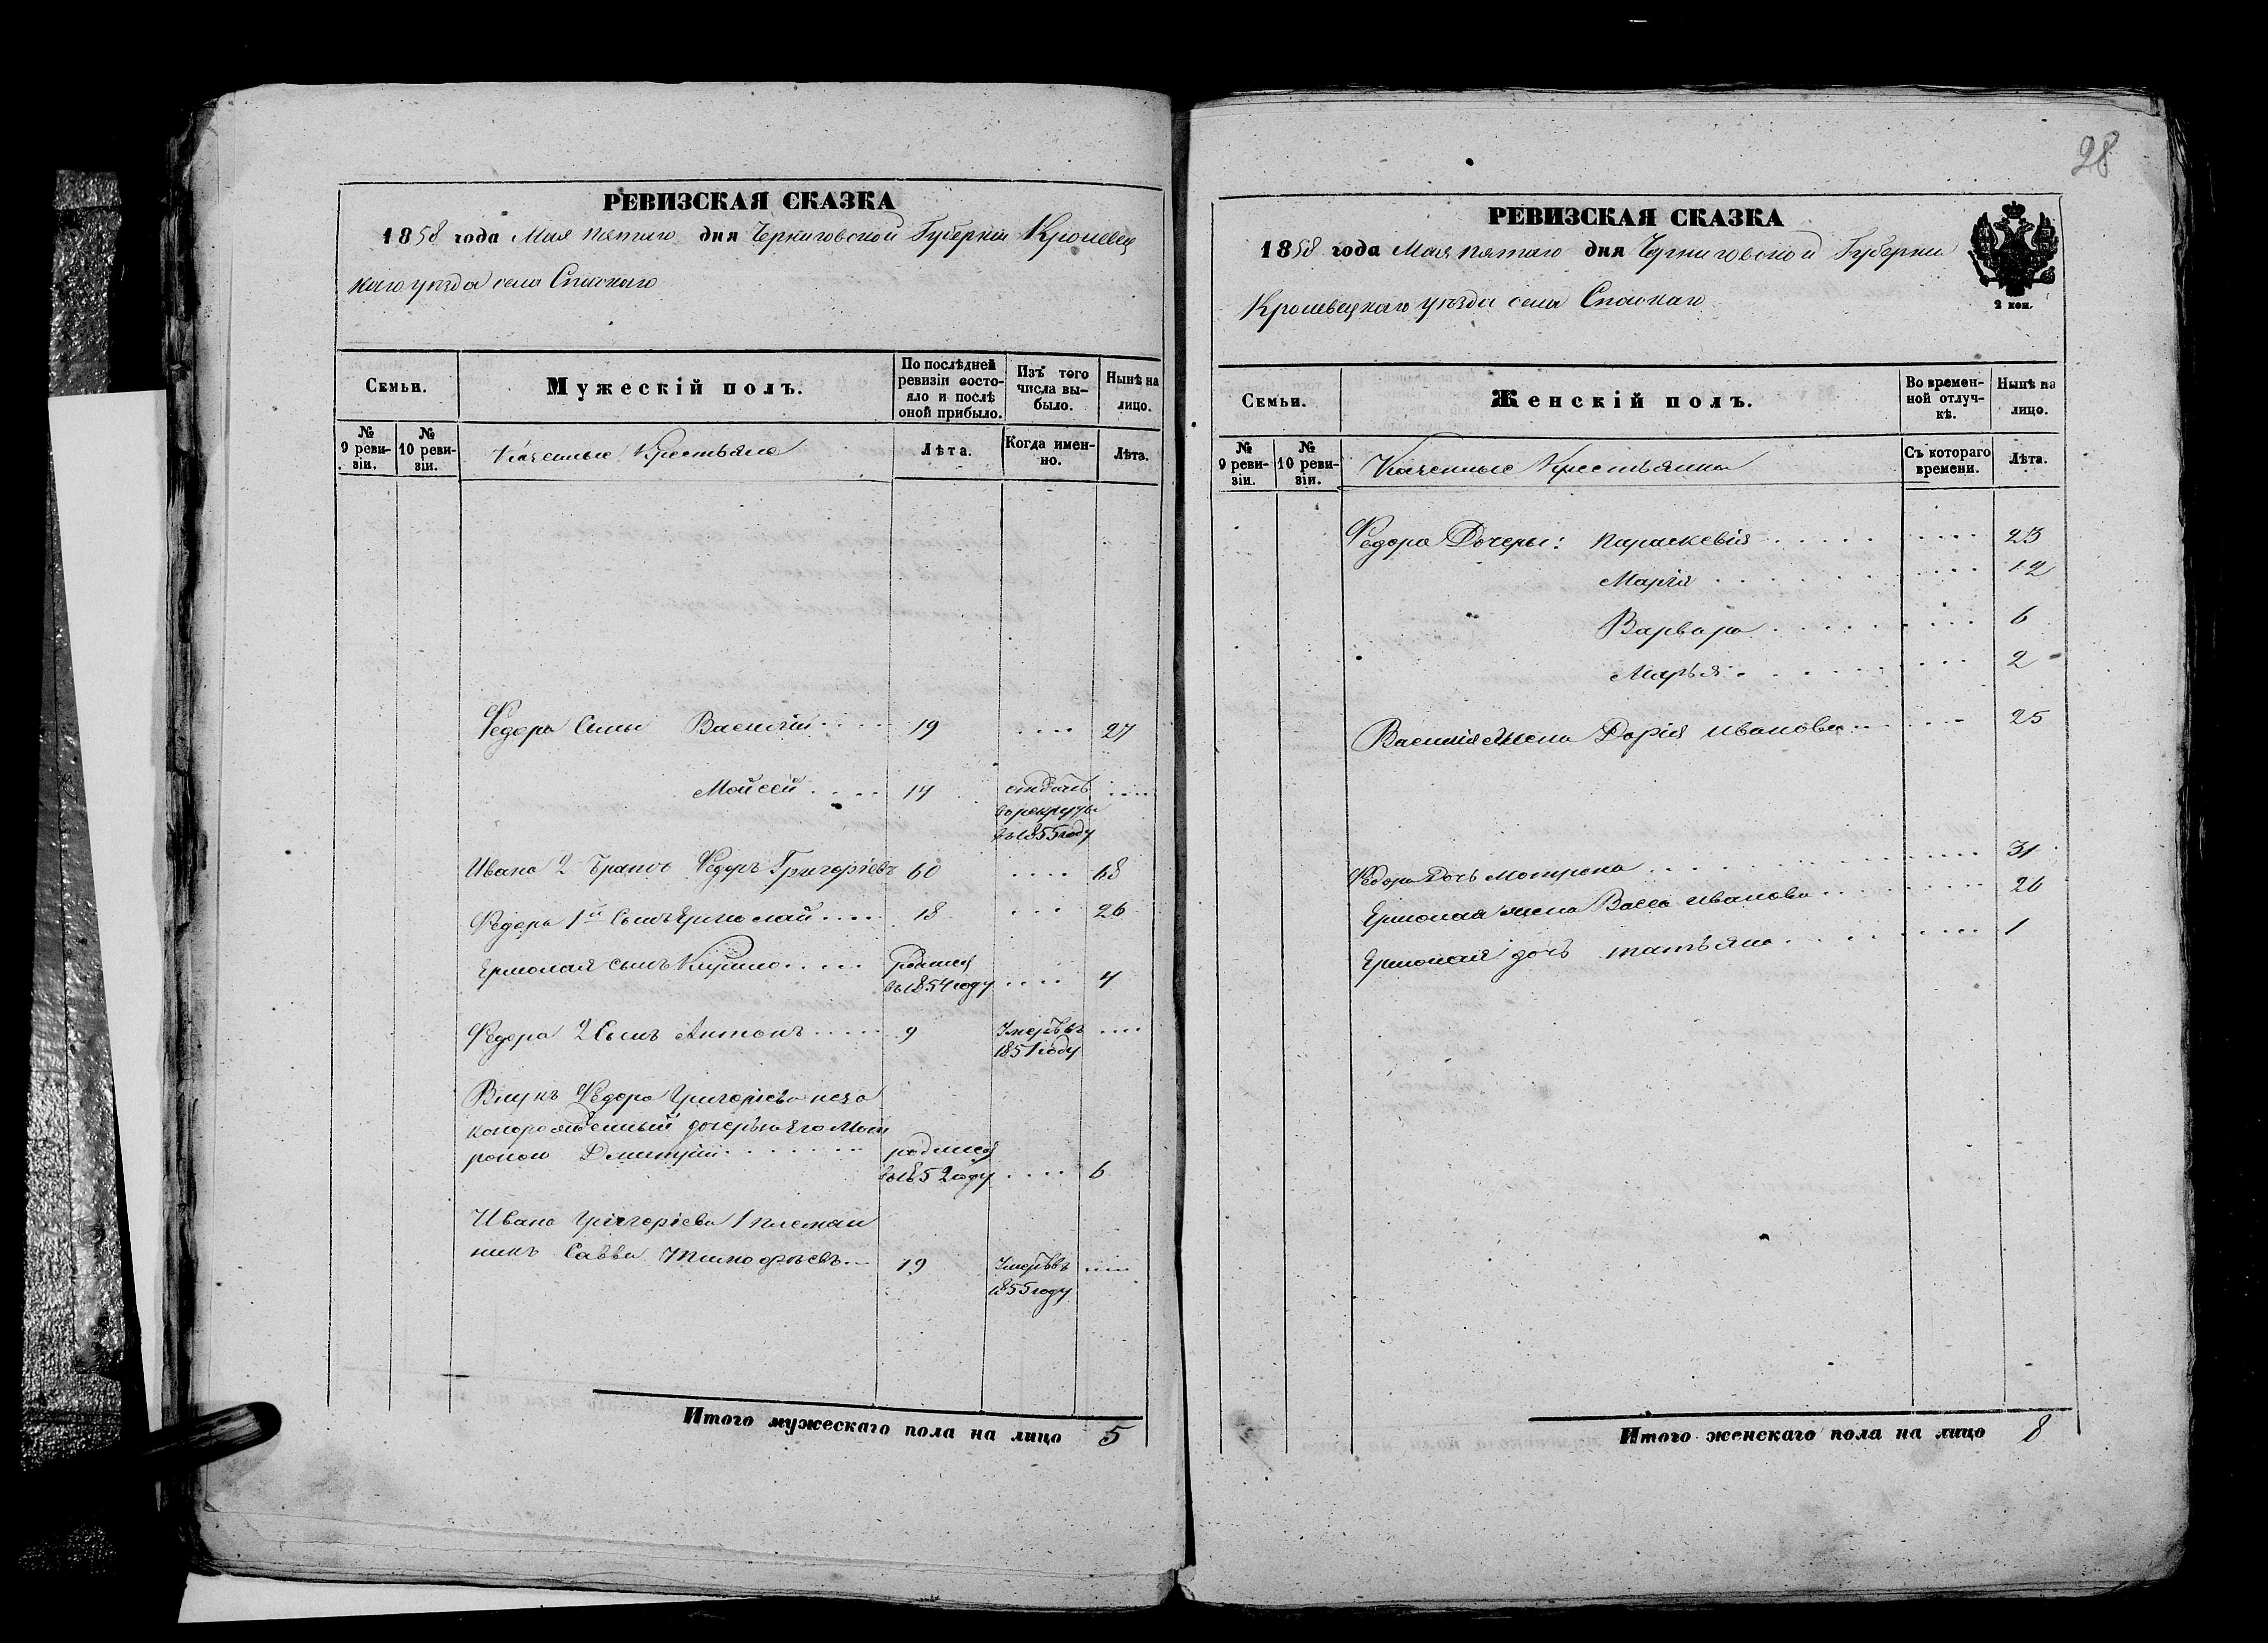 РЕВИЗСКАЯ СКАЗКА
1858 года Мая пятаго дня Черниговской Губерніи Кролевец
каго уезда села Спаскаго
Семьи.
Мужескій полъ.
По послѣдней ревизіи состояло и послѣ оной прибыло.
Изъ того числа выбыло.
Нынѣ на лицо.
№ 9 ревизіи.
№ 10 ревизіи.
Казенные Крестьяне
Лѣта.
Когда именно.
Лѣта.
Федора Сыны Василій . . . . 19 . . . . 27
Мойсей . . . . 14 отданъ . . . .
в рекруты
въ 1855 году
Ивана 2 Братъ Федоръ Григоріевъ 60 . . . . 68
Федора 1й Сынъ Ермолай . . . . 18 . . . 26
Ермолая сынъ Кузьма . . . . родился
въ 1854 году . . . . 4
Федора 2 Сынъ Антонъ . . . . 9 Умеръ въ . . . .
1851 году
Внукъ Федора Григоріева неза
конорожденный дочерью его Мот
роною Дмитрій . . . . . . родился
въ 1852 году . . . . 6
Ивана Григоріева 1 племян
никъ Савва Тимофѣевъ . . 19 Умеръ въ . . . .
1855 году
Итого мужескаго пола на лицо 5
28
РЕВИЗСКАЯ СКАЗКА
1858 года Мая пятаго дня Черниговской Губерніи
Кролевецкаго уезда села Спаскаго
2 коп.
Семьи.
Женскій полъ.
Во временной отлучкѣ.
Нынѣ на лицо.
№ 9 ревизіи.
№ 10 ревизіи.
Казенные Крестьянки
Съ котораго времени.
Лѣта.
Федора Дочеры: Параскевія . . . . . . . . . 23
Марія . . . . . . . . . 12
Варвара . . . . . . . . . 6
Марья . . . . . . . . . 2
Василія жена Дарія Иванова . . . . . . 25
Федора Дочь Мотрона . . . . . . . . . 31
Ермолая жена Васса Иванова . . . . . . . . 26
Ермолая дочь Татьяна . . . . . . . . . 1
Итого женскаго пола на лицо 8